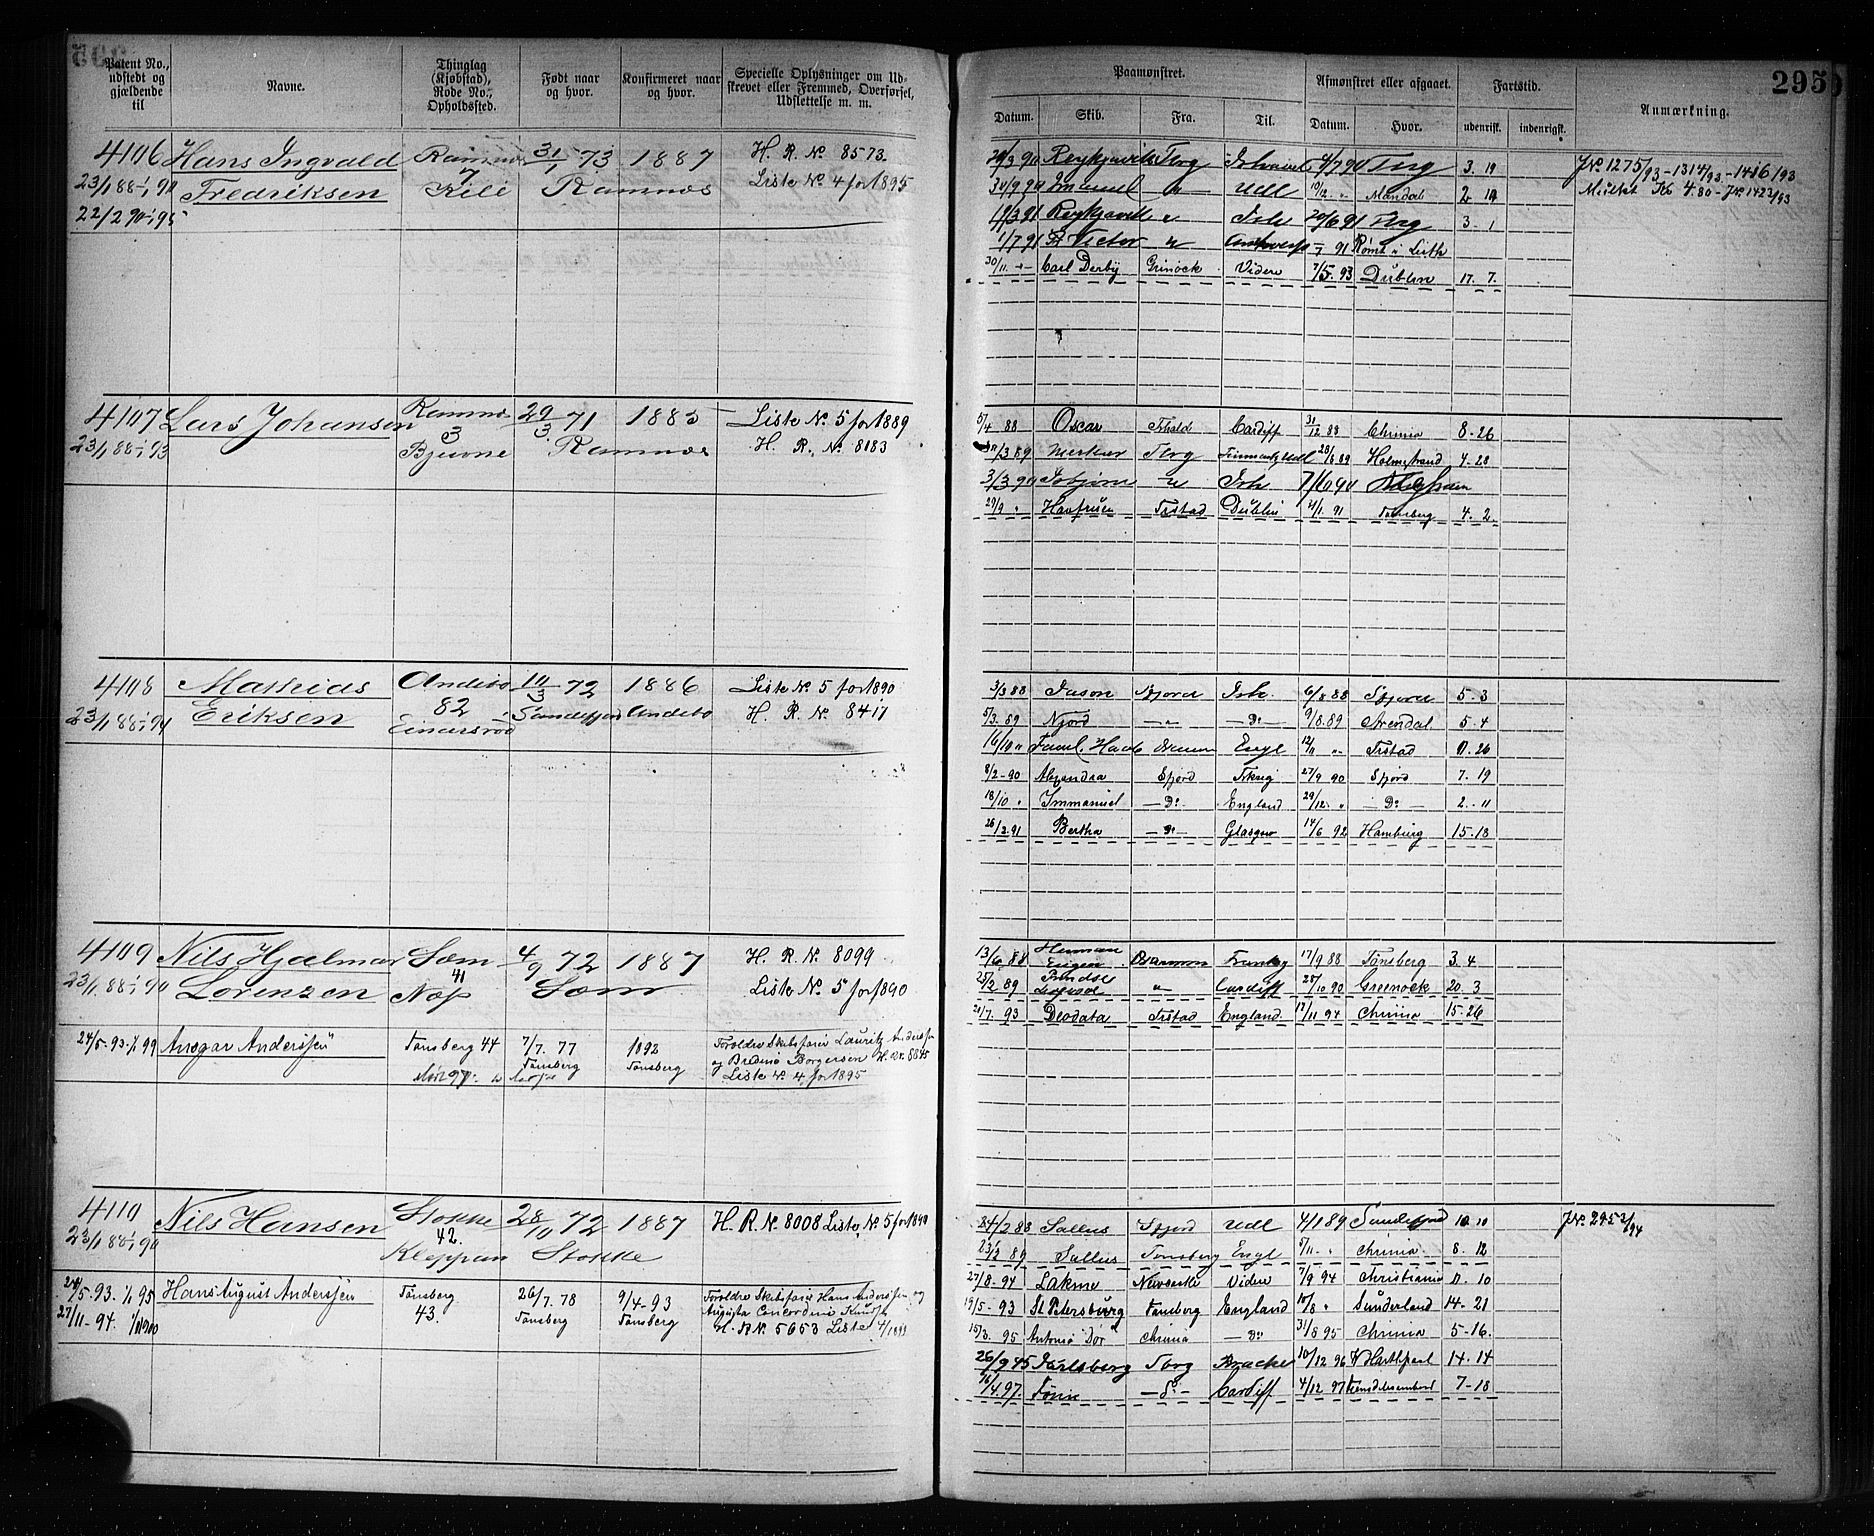 295
Patent No., udstedt og gjældende til
Navne.
Thinglag (Kjøbstad), Rode No., Opholdssted.
Født naar og hvor.
Konfirmeret naar og hvor.
Specielle Oplysninger om Udskrevet eller Fremmed, Overførsel, Udslettelse m. m.
Paamønstret.
Afmønstret eller afgaaet.
Fartstid.
Anmærkning.
Datum. Skib. Fra. Til. Datum. Hvor. udenrigsk. indenrigsk.
4106 Hans Ingvald Ramnes 31/1 73 1887 H. R. No 8573.
23/1 88-1/1 90 Fredriksen 7 Kile Ramnes Liste No 4 for 1895
22/2 90-1/1 95
29/3 90 Reykjavik Tbrg 4/7 90 Tbrg 3. 19
30/9 90 Imanuel " Udl 10/12 " Mandal
19/3 91 Reykjavik " 20/6 91 Tbrg 3. 1
1/7 91 St Victor " Antwerp 91 Rømt i Leith
30/11 Carl Derby Grinock Videre 7/5. 93 Dublin 17. 7.
JNo 1275/93-1314/93-1416/93
Mulkt Kr 4.80 - JNo 1423/93
4107 Lars Johansen Ramnes 29/3 71 1885 Liste No 5 for 1889
23/1 88-1/1 93 3 Ramnes H. R. No 8183
5/4 88 Oscar Cardiff 31/12 88 Chrinia 8-26
/3 89 Tbrg 28/8 89 Holmestrand 4-28
3/3 90 " Ish. 7/6 90
29/9 " Havfruen Frstad Dublin 21/1. 91 Tønsberg 4. 2.
4108 Mathias Andebo 10/3 72 1886 Liste No 5 for 1890
23/1 88-1/1 94 Eriksen 82 Einarsrød Sandefjord Andebo H. R. No 8411
3/3 88 Jason Sfjord Ish. 6/8 88 Sfjord 5. 3
5/3. 89 Njord -"- -Do- 9/8. 89 Arendal 5. 4
16/10 " Engl 12/11 " Frstad 0. 26
8/2-90 Alexandra Sfjord 27/9 90 Sfjord 7. 19
18/10 " Immanuel -Do- England 29/12. " -Do- 2. 11
26/2. 91 Bertha -Do- Glasgow 14/6 92 Hamburg 15-18
4109 Nils Hjalmar Sæm 4/9 72 1887 H. R. No. 8099
23/1 88-1/1 90 Lorenzen 41 Næs Sæm Liste No 5 for 1890
13/6 88 Herman Eugen 17/9 88 Tønsberg 3. 4
25/2 89 " Cardiff 28/10 90 Greenock 20. 3
21/7. 93 Deodata Frstad England 17/11 94 Chrinia 15-26
24/5-93-1/1 99 Ansgar Anderssen Tønsberg 44 7/7. 77 Tønsberg 1892 Tønsberg
Forældre Skibsfører Lauritz
og Borgersen H. R. 8845
Liste No 4 for 1895
4110 Nils Hansen Stokke 28/10 72 1887 H. R. No. 8008 Liste No 5 for 1890
23/1 88-1/1 90 42. Kleppan Stokke
24/2 88 Sallus Sfjord Udl 4/1 89 Sandefjord 10. 10
23/2 89 Sallus Tønsberg Engl 5/11. " Chrinia 8. 12
JNo 2952/94
24/5-93. 1/1 95 Hans August Anderssen Tønsberg 43. 26/7. 78 Tønsberg 9/4-93 Tønsberg
27/11-94. 1/1 1900
Forældre Skibsfører Hans Anderssen og
Augusta Knudsen
H. R No. 5653 Liste
27/8-94 Lakme Newcastle Videre 7/9 94 Christiania 0. 10
19/5-93 St Petersburg Tønsberg England 10/8 " Sunderland 14-21
15/3. 95 Chrinia -Do- 31/8 95 Chrinia 5-16.
26/9 95 Jarlsberg Tbrg 10/12 96 W Hartlepool 14. 14
16/4. 97. -Do- Cardiff 4/12 97 7-18